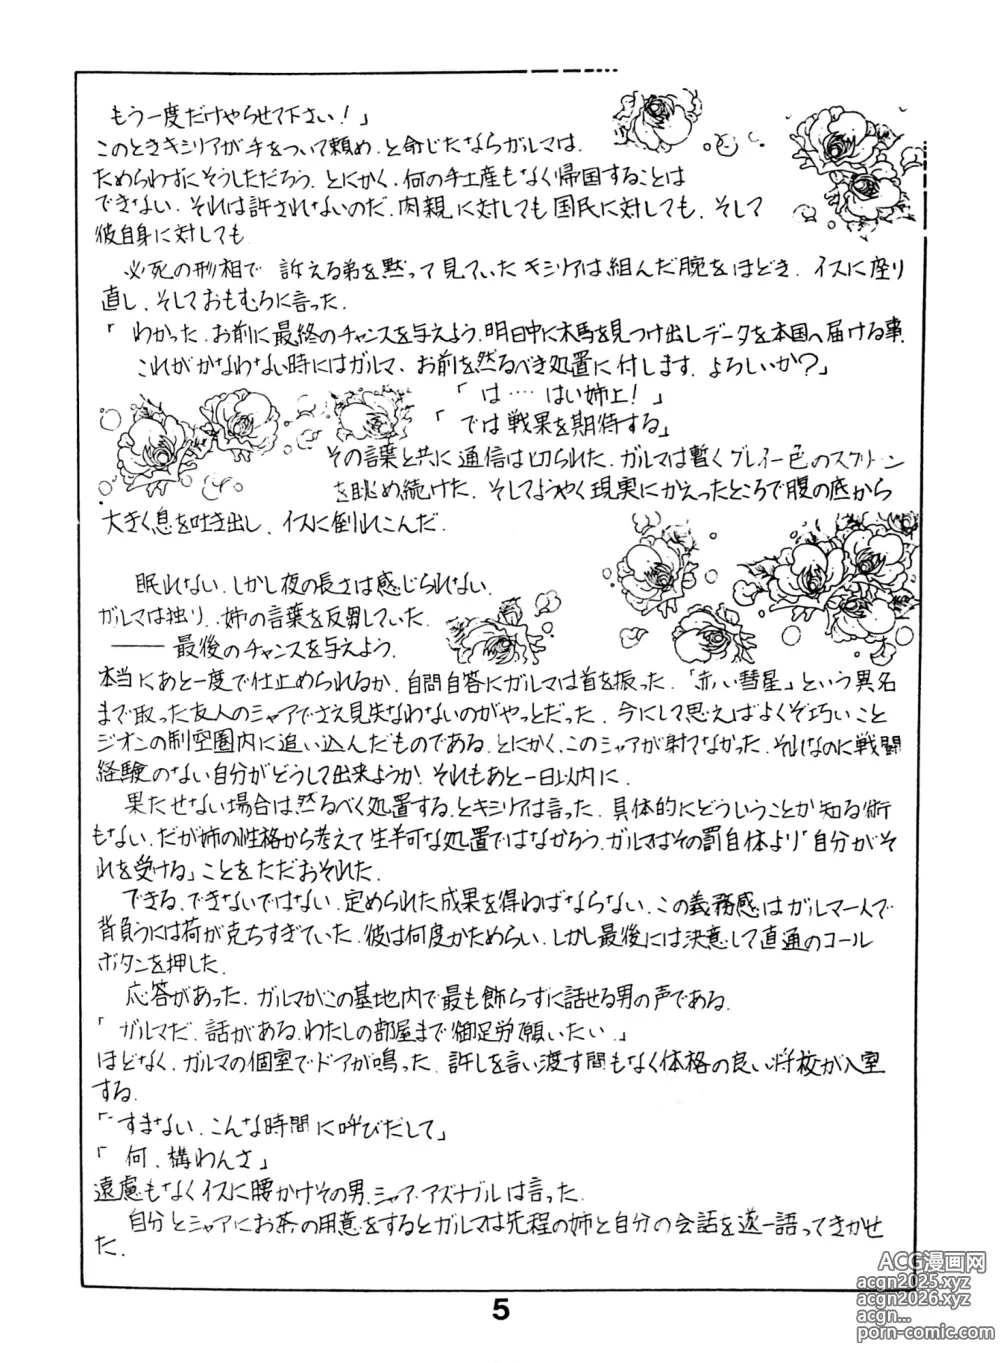 もう一度だけやらせて下さい！」
このときキシリアが手をついて頼め、と命じたならガルマは、
ためらわずにそうしただろう。とにかく、何の手土産もなく帰国することは
できない。それは許されないのだ、肉親に対しても国民に対しても、そして
彼自身に対しても。
必死の形相で 訴える弟を黙って見ていたキシリアは組んだ腕をほどき、イスに座り
直し、そしておもむろに言った。
「わかった。お前に最終のチャンスを与えよう。明日中に木馬を見つけ出しデータを本国へ届ける事、
これがかなわない時にはガルマ、お前を然るべき処置に付します。よろしいか？」
「は‥‥はい姉上！」
「では戦果を期待する」
その言葉と共に通信は切られた。ガルマは暫くグレイ一色のスクリーン
を眺め続けた。そしてようやく現実にかえったところで腹の底から
大きく息を吐き出し、イスに倒れこんだ。
眠れない。しかし夜の長さは感じられない。
ガルマは独り、姉の言葉を反芻していた。
――最後のチャンスを与えよう。
本当にあと一度で仕止められるか、自問自答にガルマは首を振った。「赤い彗星」という異名
まで取った友人のシャアでさえ見失なわないのがやっとだった。今にして思えばよくぞ巧いこと
ジオンの制空圏内に追い込んだものである。とにかく、このシャアが射てなかった。それなのに戦闘
経験のない自分がどうして出来ようか、それもあと一日以内に。
果たせない場合は然るべく処置する、とキシリアは言った。具体的にどういうことか知る術
もない。だが姉の性格から考えて生半可な処置ではなかろう。ガルマはその罰自体より「自分がそ
れを受ける」ことをただおそれた。
できる、できないではない、定められた成果を得ねばならない。この義務感はガルマ一人で
背負うには荷が克ちすぎていた。彼は何度かためらい、しかし最後には決意して直通のコール
ボタンを押した。
応答があった。ガルマがこの基地内で最も飾らずに話せる男の声である。
「ガルマだ、話がある。わたしの部屋まで御足労願いたい。」
ほどなく、ガルマの個室でドアが鳴った。許しを言い渡す間もなく体格の良い将校が入室
する。
「すまない、こんな時間に呼びだして」
「何、構わんさ」
遠慮もなくイスに腰かけその男、シャア・アズナブルは言った。
自分とシャアにお茶の用意をするとガルマは先程の姉と自分の会話を逐一語ってきかせ
た。
5
ACG漫画网
acgn2025.xyz
acgn2026.xyz
acgn...
porn-comic.com